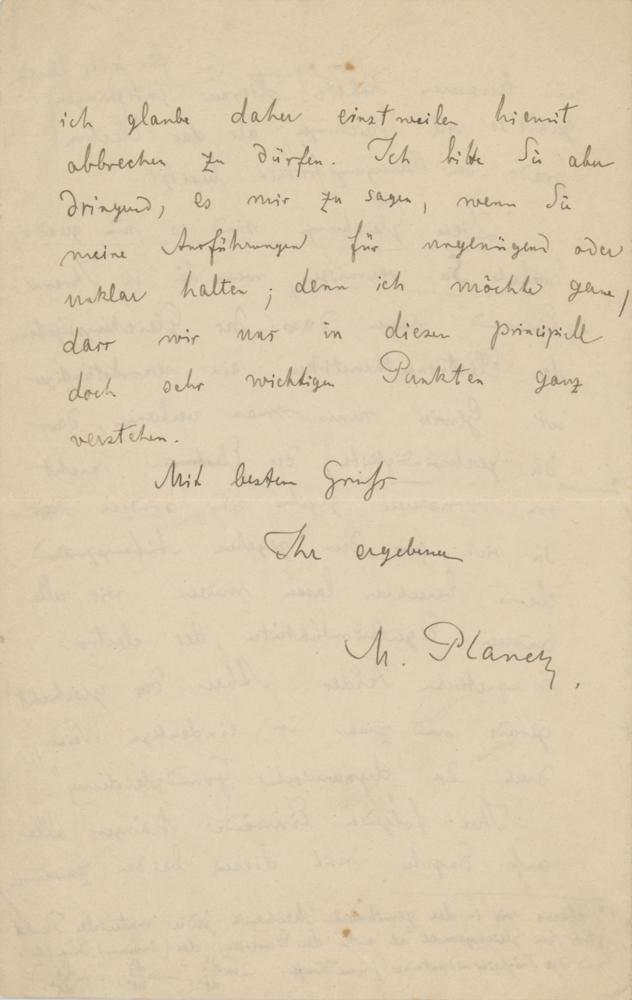 ich glaube daher einstweilen hiemit
abbrechen zu dürfen. Ich bitte Sie aber
dringend, es mir zu sagen, wenn Sie
meine Ausführungen für ungenügend oder
unklar halten; denn ich möchte gerne,
dass wir uns in diesen principiell
doch sehr wichtigen Punkten ganz
verstehen.
Mit bestem Gruss
Ihr ergebener
M. Planck.